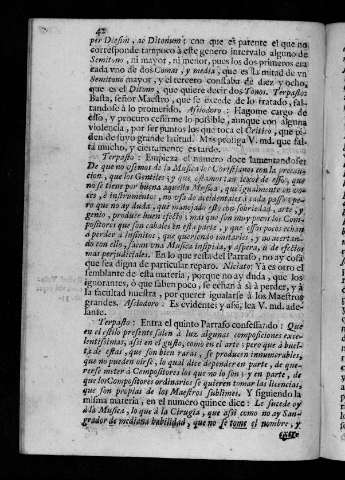 42
per Diesim, ac Ditonum; con que es patente el que no
corresponde tampoco à este genero intervalo alguno de
Semitono, ni mayor, ni menor, pues los dos primeros era
cada vno de dos Comas, y media, que es la mitad de vn
Semitono mayor, y el tercero constaba de diez y ocho,
que es el Ditono, que quiere decir dos Tonos. Terpasto:
Basta, señor Maestro, que se excede de lo tratado, fal-
tandose à lo promerido. Asciodoro: Hagome cargo de
esso, y procuro ceñirme lo possible, aunque con alguna
violencia, por ser puntos los que toca el Critico, que pi-
den de suyo grande latitud. Mas prosiga V. md. que fal-
tà mucho, y ciertamente es tarde.
Terpasto: Empieza el numero doce lamentandose:
De que no vsemos de la Musica los Christianos con la precau-
cion, que los Gentiles; y que estamos tan lexos de esso, que
no se tiene por buena aquella Musica, que igualmente en vo-
ces, è instrumentos, no vsa de accidentales à cada passo; pe-
ro que no ay duda, que manejado esto con sobriedad, arte, y
genio, produce buen efecto; mas que son muy pocos los Com-
positores que son cabales en esta parte, y que essos pocos echan
à perder à infinitos, que queriendo imitarles, y no acertan-
do con ello, sacan vna Musica insipida, y aspera, ù de efectos
mas perjudiciales. En lo que resta del Parrafo, no ay cosa
que sea digna de particular reparo. Niciato: Ya es otro el
semblante de esta materia, porque no ay duda, que los
ignorantes, ò que saben poco, se echan à sì à perder, y à
la facultad nuestra, por querer igualarse à los Maestros
grandes. Asciodoro. Es evidente; y assi, lea V. md. ade-
lante.
Terpasto: Entra el quinto Parrafo confessando: Que
en el estilo presente salen à luz algunas composiciones exce-
lentissimas, assi en el gusto, como en el arte; pero que à buel-
tas de estas, que son bien raras, se producen innumerables,
que no pueden oirse, lo qual dice depender en parte, de que-
rerse meter à Compositores los que no lo son; y en parte, de
que los Compositores ordinarios se quieren tomar las licencias,
que son propias de los Maestros sublimes. Y siguiendo la
misma materia, en el numero quince dice: Le sucede oy
à la Musica, lo que à la Cirugia, que assi como no ay San-
grador de mediana habilidad, que no se tome el nombre, y